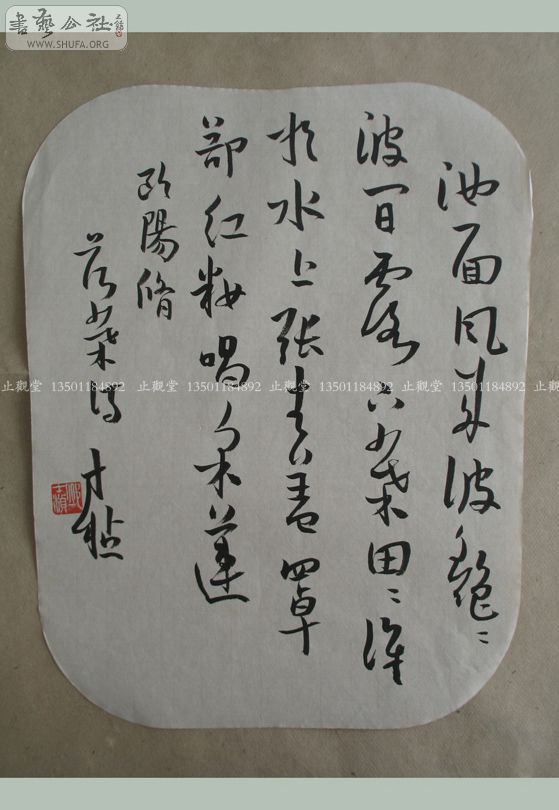 書藝公社
WWW.SHUFA.ORG
池面風来波瀲〻
波間露下葉田〻誰
於水上張青蓋罩
却红粧唱采蓮
欧陽脩
荷葉詩
止觀堂 13501184892 止觀堂 13501184892 止觀堂 13501184892 止觀堂 13501184892